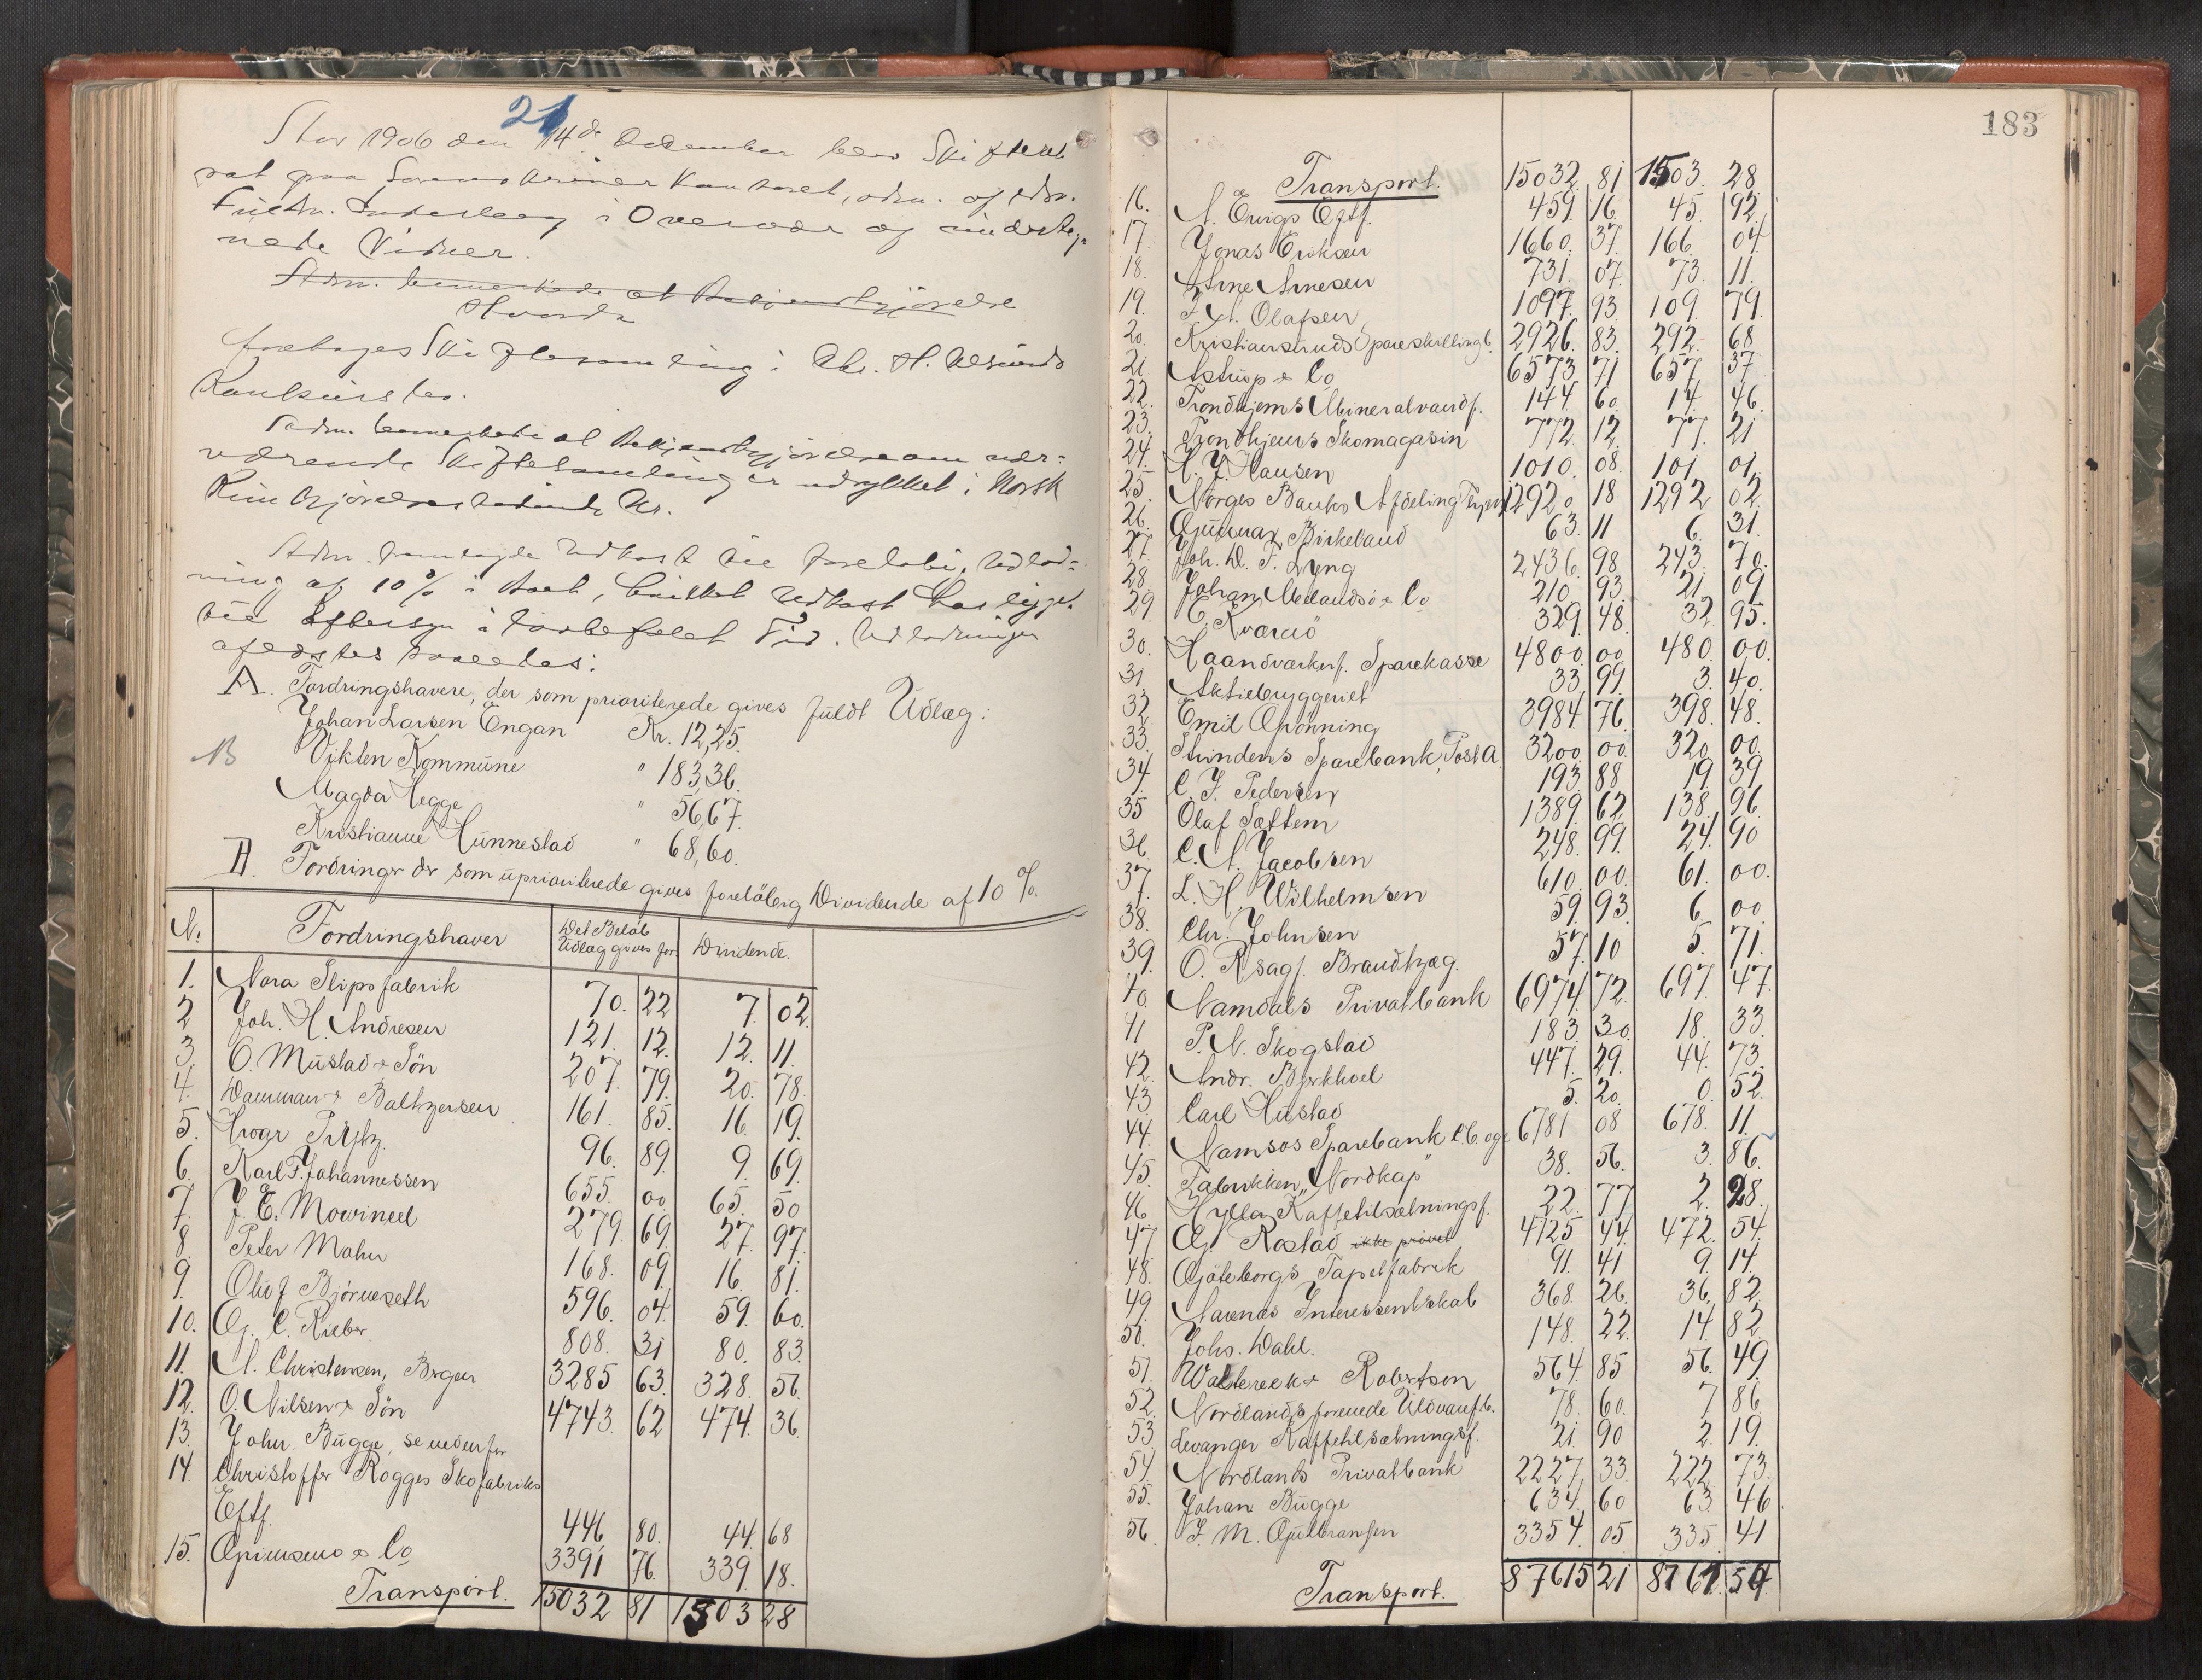 21
Aar 1906 den 14de December blev Skifteret
sat paa Sorenskriverkontoret, adm. af edsv.
Fuldm. i Overvær af undertegnede
nede Vidner.
Adm. bemerkede at Bekjendtgjørelse
Hvorda
foretages Skiftesamling i Chr. H.
Konkursbo.
Adm. bemerkede at Bekjendtgjørelse om nær-
værende Skiftesamling er indrykket i Norsk
Kundgjørelsestidende Nr.
Adm. fremlagde Udkast til foreløbig Udlod-
ning af 10 % i Boet, hvilket Udkast har ligget
til Eftersyn i lovbefalet Tid. Udlodningen
afsluttes saaledes:
A. Fordringshavere, der som prioriterede gives fuldt Udlæg:
Johan Larsen Engan Kr. 12,25.
Vikten Kommune " 183,36.
Magda Hegge " 56,67.
Kristianne Hunnestad " 68,60.
B. Fordringer der som uprioriterede gives foreløbig Dividende af 10 %.
N. Fordringshaver Det Beløb Udlæg gives for. Dividende.
1. Nora Slipsfabrik 70. 22 7. 02.
2 Joh. H. Andresen 121. 12. 12. 11.
3. O. Mustad & Søn 207. 79. 20. 78.
4. Damman & Baltzersen 161. 85. 16. 19.
5. Hroar Prytz. 96. 89. 9. 69.
6. Karl F. Johannessen 655. 00 65. 50
7. J. E. Mowinckel 279. 69. 27. 97.
8. Peter Mahn 168. 09. 16. 81.
9. Oluf Bjørneseth 596. 04. 59. 60.
10. G. C. Rieber. 808. 31 80. 83.
11. N. Christensen, Bergen 3285 63. 328. 56.
12. O. Nilsen & Søn 4743. 62 474. 36.
13. John. Bugge, se nedenfor
14. Christoffer Rogges Skofabriks
Eftf. 446 80. 44. 68
15. Grimseno & Co 3391 76. 339. 18.
Transport. 15032 81 1503 28
183
Transport. 15032. 81 1503. 28.
16. N. Envigs Eftf. 459. 16. 45. 92.
17. Jonas Eriksen 1660. 37. 166. 04.
18. Arne Arnesen 731. 07. 73. 11.
19. Olafsen 1097. 93. 109. 79.
20. Kristiansunds Spareskillingb. 2926. 83. 292. 68
21. Astrup & Co 6573 71 657. 37
22. Trondhjems Mineralvandf. 144. 60. 14. 46.
23. Trondhjems Skomagasin 772. 12. 77. 21
24. Hansen 1010. 08. 101. 01.
25. Norges Banks Afdeling Thjem 12920 18 1292 02.
26. Gunnar Birkeland 63. 11 6. 31.
27. Joh. D. F. Lyng 2436. 98. 243. 70.
28. Johan Melandsø & Co 210. 93. 21. 09.
29. E. Kvarnø 329. 48. 32. 95.
30. Haandverkerf. Sparekasse 4800 00 480. 00.
31 Aktiebryggeriet 33. 99. 3. 40.
32. Emil Grønning 3984. 76. 398. 48.
33. Strindens Sparebank, Post A. 3200. 00. 320. 00.
34. C. J. Pedersen 193. 88 19. 39.
35 Olaf Sættem 1389. 62. 138. 96.
36. C. A. Jacobsen 248. 99. 24. 90
37. L. H. Wilhelmsen 610. 00. 61. 00.
38. Chr. Johnsen 59. 93. 6. 00
39. O. Rsagf. Brandtzæg. 57. 10 5. 71.
40. Namdals Privatbank 6974. 72. 697. 47.
41 P. N. Skogstad 183. 30. 18. 33.
42. Andr. Bjerkhoel 447. 29. 44. 73.
43 Carl Hustad 5. 20. 0. 52.
44. Namsos Sparebank 6781 08 678. 11.
45. Fabrikken "Nordkap" 38. 56. 3. 86.
46 Hylla Kaffetilsætningsf. 22. 77 2. 28.
47 G. Rostad ikke prøvet 4725 44. 472. 54.
48. Gøteborgs Tapetfabrik 91. 41 9. 14.
49. Interessentskab 368. 26. 36. 82.
50. Johs. Dahl. 148. 22. 14. 82.
51. Robertson 564. 85 56. 49
52. Nordlands forenede Uldvarefb. 78. 60. 7 86.
53. Levanger Kaffetilsætningsf. 21. 90 2. 19.
54. Nordlands Privatbank 2227. 33. 222. 73.
55. Johan Bugge 634. 60 63. 46.
56. F. M. Gulbransen 3354. 05 335. 41
Transport. 87615 21 8761. 54